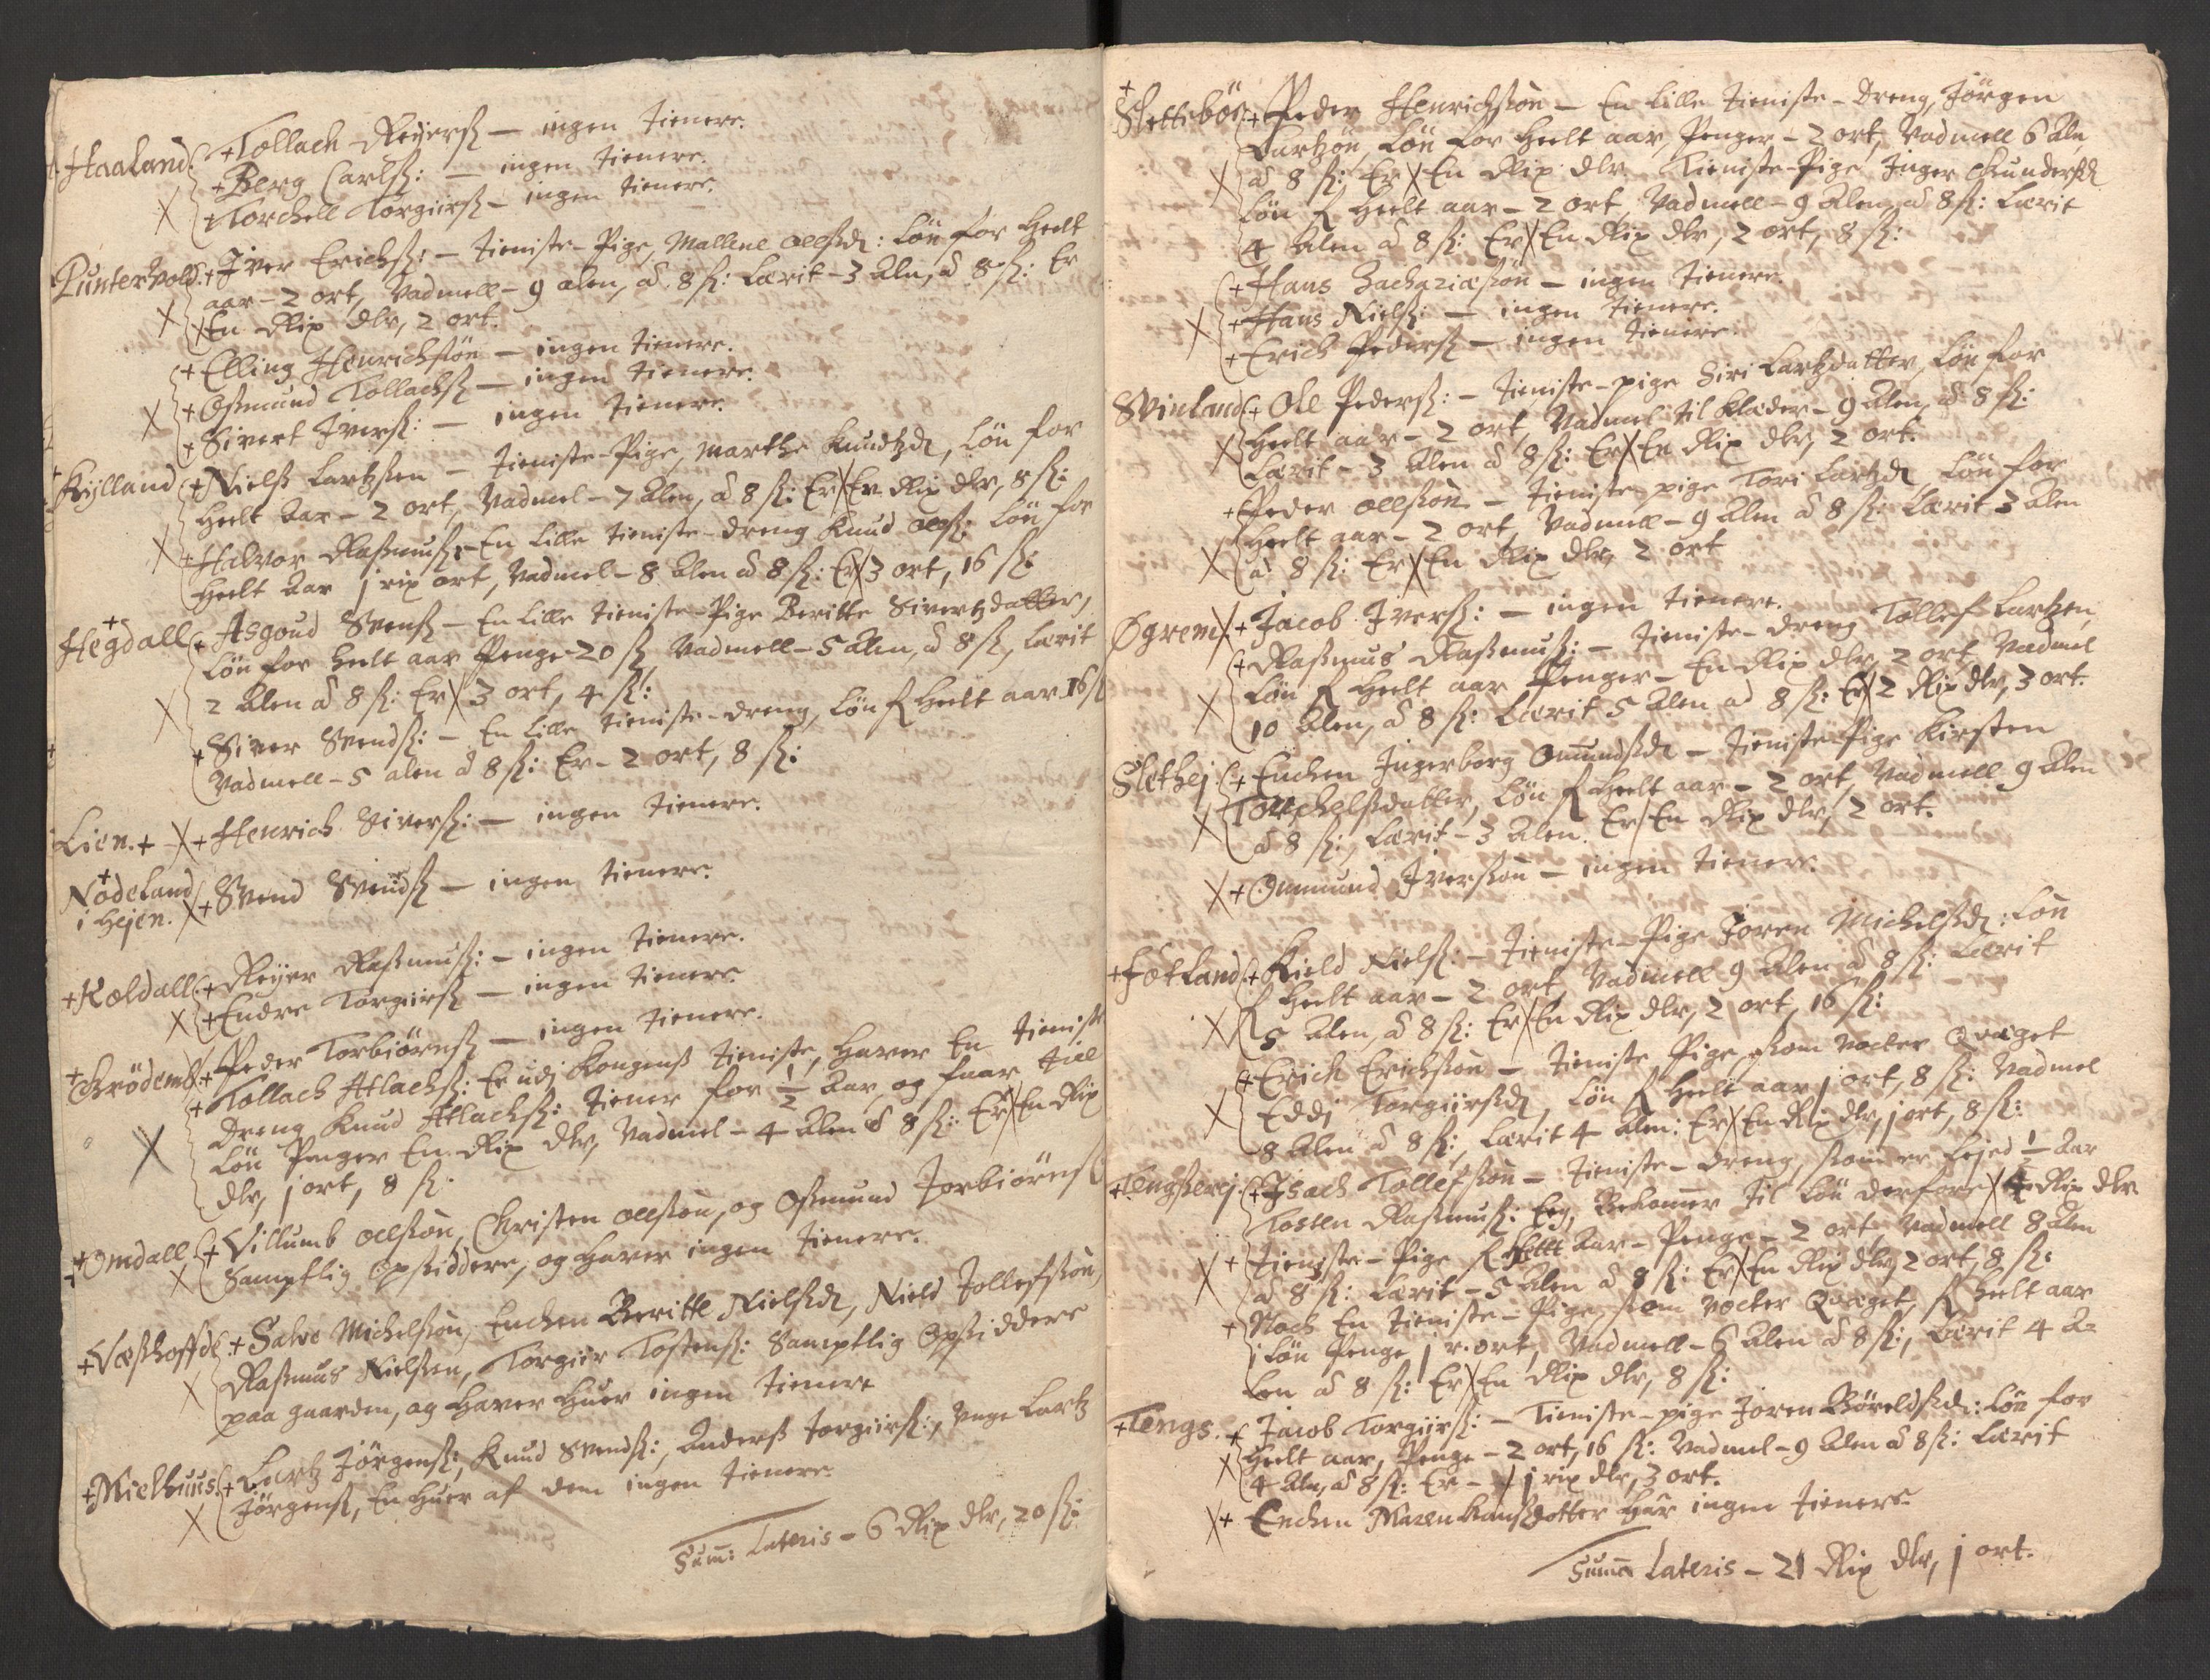 Haaland. + Tollach Reijerß — ingen tienere.
+ Berg Carlß: — ingen tienere.
+ Torchell Torgierß — ingen tienere.
Punterwold. + Iver Erichß: — tieniste-Pige, Mallene Olleßdr: Løn for heelt
aar - 2 ort, Vadmell - 9 alen, ad 8 ß: Lærit - 3 Alen, ad 8 ß: Er
En Rix dlr, 2 ort.
+ Elling Henrichßøn — ingen tienere.
+ Oßmund Tollachß — ingen tienere.
+ Sivert Iverß: — ingen tienere.
+ Kylland + Nielß Lartzßen — tieniste-Pige, Marthe Knudtzdr, Løn for
heelt Aar - 2 ort, Vadmel - 7 Alen, ad 8 ß: Er En Rix dlr, 8 ß:
+ Halvor Raßmusß: - En lille tieniste-dreng Knud Olleß: Løn for
heelt Aar j rix ort, Vadmel - 8 Alen ad 8 ß: Er 3 ort, 16 ß:
+ Hegdall + Asgoud Svenß — En lille tieniste-Pige Beritte Sivertzdatter,
Løn for heelt aar Penge 20 ß, Vadmell - 5 Alen, ad 8 ß, Lærit
2 Alen ad 8 ß: Er 3 ort, 4 ß:
+ Siver Svendß: — En lille tieniste-dreng, Løn f heelt aar 16 ß
Vadmell - 5 alen ad 8 ß: Er - 2 ort, 8 ß:
Lien. + + Henrich Siverß: — ingen tienere.
+ Nodeland
i Hejen. + Svend Svendß — ingen tienere.
+ Koldall + Reijer Raßmusß: — ingen tienere.
+ Endre Torgierß — ingen tienere.
+ Grødemb. + Peder Torbiørnß — ingen tienere.
+ Tollach Atlachß: Er udj Kongens tieniste, haver En tieniste
Dreng Knud Atlachß: tiener for ½ Aar, og faar till
Løn Penger En Rix dlr, Vadmel - 4 Alen ad 8 ß: Er En Rix
dlr, j ort, 8 ß.
+ Omdall + Villumb Olleßøn, Christen Olleßøn, og Oßmund Torbiørnß
Samptlig Opsiddere, og haver ingen tienere.
+ Væshoffde. + Salve Michelßøn, Enchen Beritte Nielßdr, Nield Tolleffßøn,
Raßmus Nielßen, Torgier Tostenß: Samptlig Opsiddere
paa gaarden, og haver huer ingen tienere
+ Mielhuus. + Lartz Jørgenß, Knud Svendß:, Anderß Torgierß:, unge Lartz
Jørgenß, En huer af dem ingen tienere.
Sum: Lateris - 6 Rix dlr, 20 ß:
+ Slettebøe. + Peder Henrichßøn — En lille tieniste-Dreng, Jørgen
Lartzøn, Løn for heelt aar, Penger - 2 ort, Vadmell 6 Aln,
ad 8 ß: Er En Rix dlr. Tieniste-Pige Inger Gunderßdr
Løn f heelt aar - 2 ort, Vadmell - 9 Alen, ad 8 ß: Lærit
4 Alen ad 8 ß: Er En Rix dlr, 2 ort, 8 ß:
+ Hans Zachariæßøn — ingen tienere.
+ Hans Nielß: — ingen tienere.
+ Erich Pederß — ingen tienere.
Svinland. + Ole Pederß: — tieniste-pige Siri Lartzdatter, Løn for
heelt aar - 2 ort, Vadmel til Klæder - 9 Alen, ad 8 ß:
Lærit - 3 Alen ad 8 ß: Er En Rix dlr, 2 ort.
+ Peder Olleßøn — tieniste-pige Tori Lartzdr, Løn for
heelt aar - 2 ort, Vadmell - 9 Alen ad 8 ß: Lærit 3 Alen
ad 8 ß: Er En Rix dlr, 2 ort
Øgrem. + Jacob Iverß: — ingen tienere.
+ Raßmus Raßmusß: — tieniste-dreng Tollef Lartzen,
Løn f heelt aar Penger - En Rix dlr, 2 ort, Vadmel
10 Alen, ad 8 ß: Lærit 5 Alen ad 8 ß: Er 2 Rix dlr, 3 ort.
Slethej. + Enchen Ingerborg Omundßdr — tieniste-Pige Kirsten
Torchelßdatter, Løn f heelt aar - 2 ort, Vadmell 9 Alen
ad 8 ß:, Lærit - 3 Alen. Er En Rix dlr, 2 ort.
+ Ommund Iverßøn — ingen tienere.
+ Fotland. + Kield Nielß: — tieniste-Pige Joren Michelßdr: Løn
f heelt aar - 2 ort Vadmell 9 Alen ad 8 ß: Lærit
5 Alen, ad 8 ß: Er En Rix dlr, 2 ort, 16 ß:
+ Erich Erichßøn — tieniste Pige, som vocter Qvæget
Eddj Torgiersdr, Løn f heelt aar j ort, 8 ß: Vadmel
8 Alen ad 8 ß:, Lærit 4 Alen: Er En Rix dlr, j ort, 8 ß:
+ Tengßerej + Isach Tollefßøn — tieniste-dreng, som er lejed ½ Aar
Tosten Raßmusß: Eeg, Bekomer til Løn derfore 4 Rix dlr
+ tieniste-Pige f heelt Aar - Penge - 2 ort, Vadmell 8 Alen
ad 8 ß: Lærit - 5 Alen ad 8 ß: Er En Rix dlr, 2 ort, 8 ß:
+ Noch En tieniste-Pige, som vocter Qvæget, f heelt aar
i Løn Penge j r. ort, Vadmell - 6 Alen ad 8 ß:, Lærit 4 A=
len ad 8 ß: Er En Rix dlr, 8 ß:
+ Tengs. + Jacob Torgierß: — Tieniste-pige Joren Børeldßdr: Løn for
heelt aar, Penge - 2 ort, 16 ß: Vadmel - 9 Alen ad 8 ß: Lærit
4 Aln, ad 8 ß: Er - j rix dlr, 3 ort.
+ Enchen Maren Hanßdotter har ingen tienere.
Suma Lateris - 21 Rix dlr, j ort.